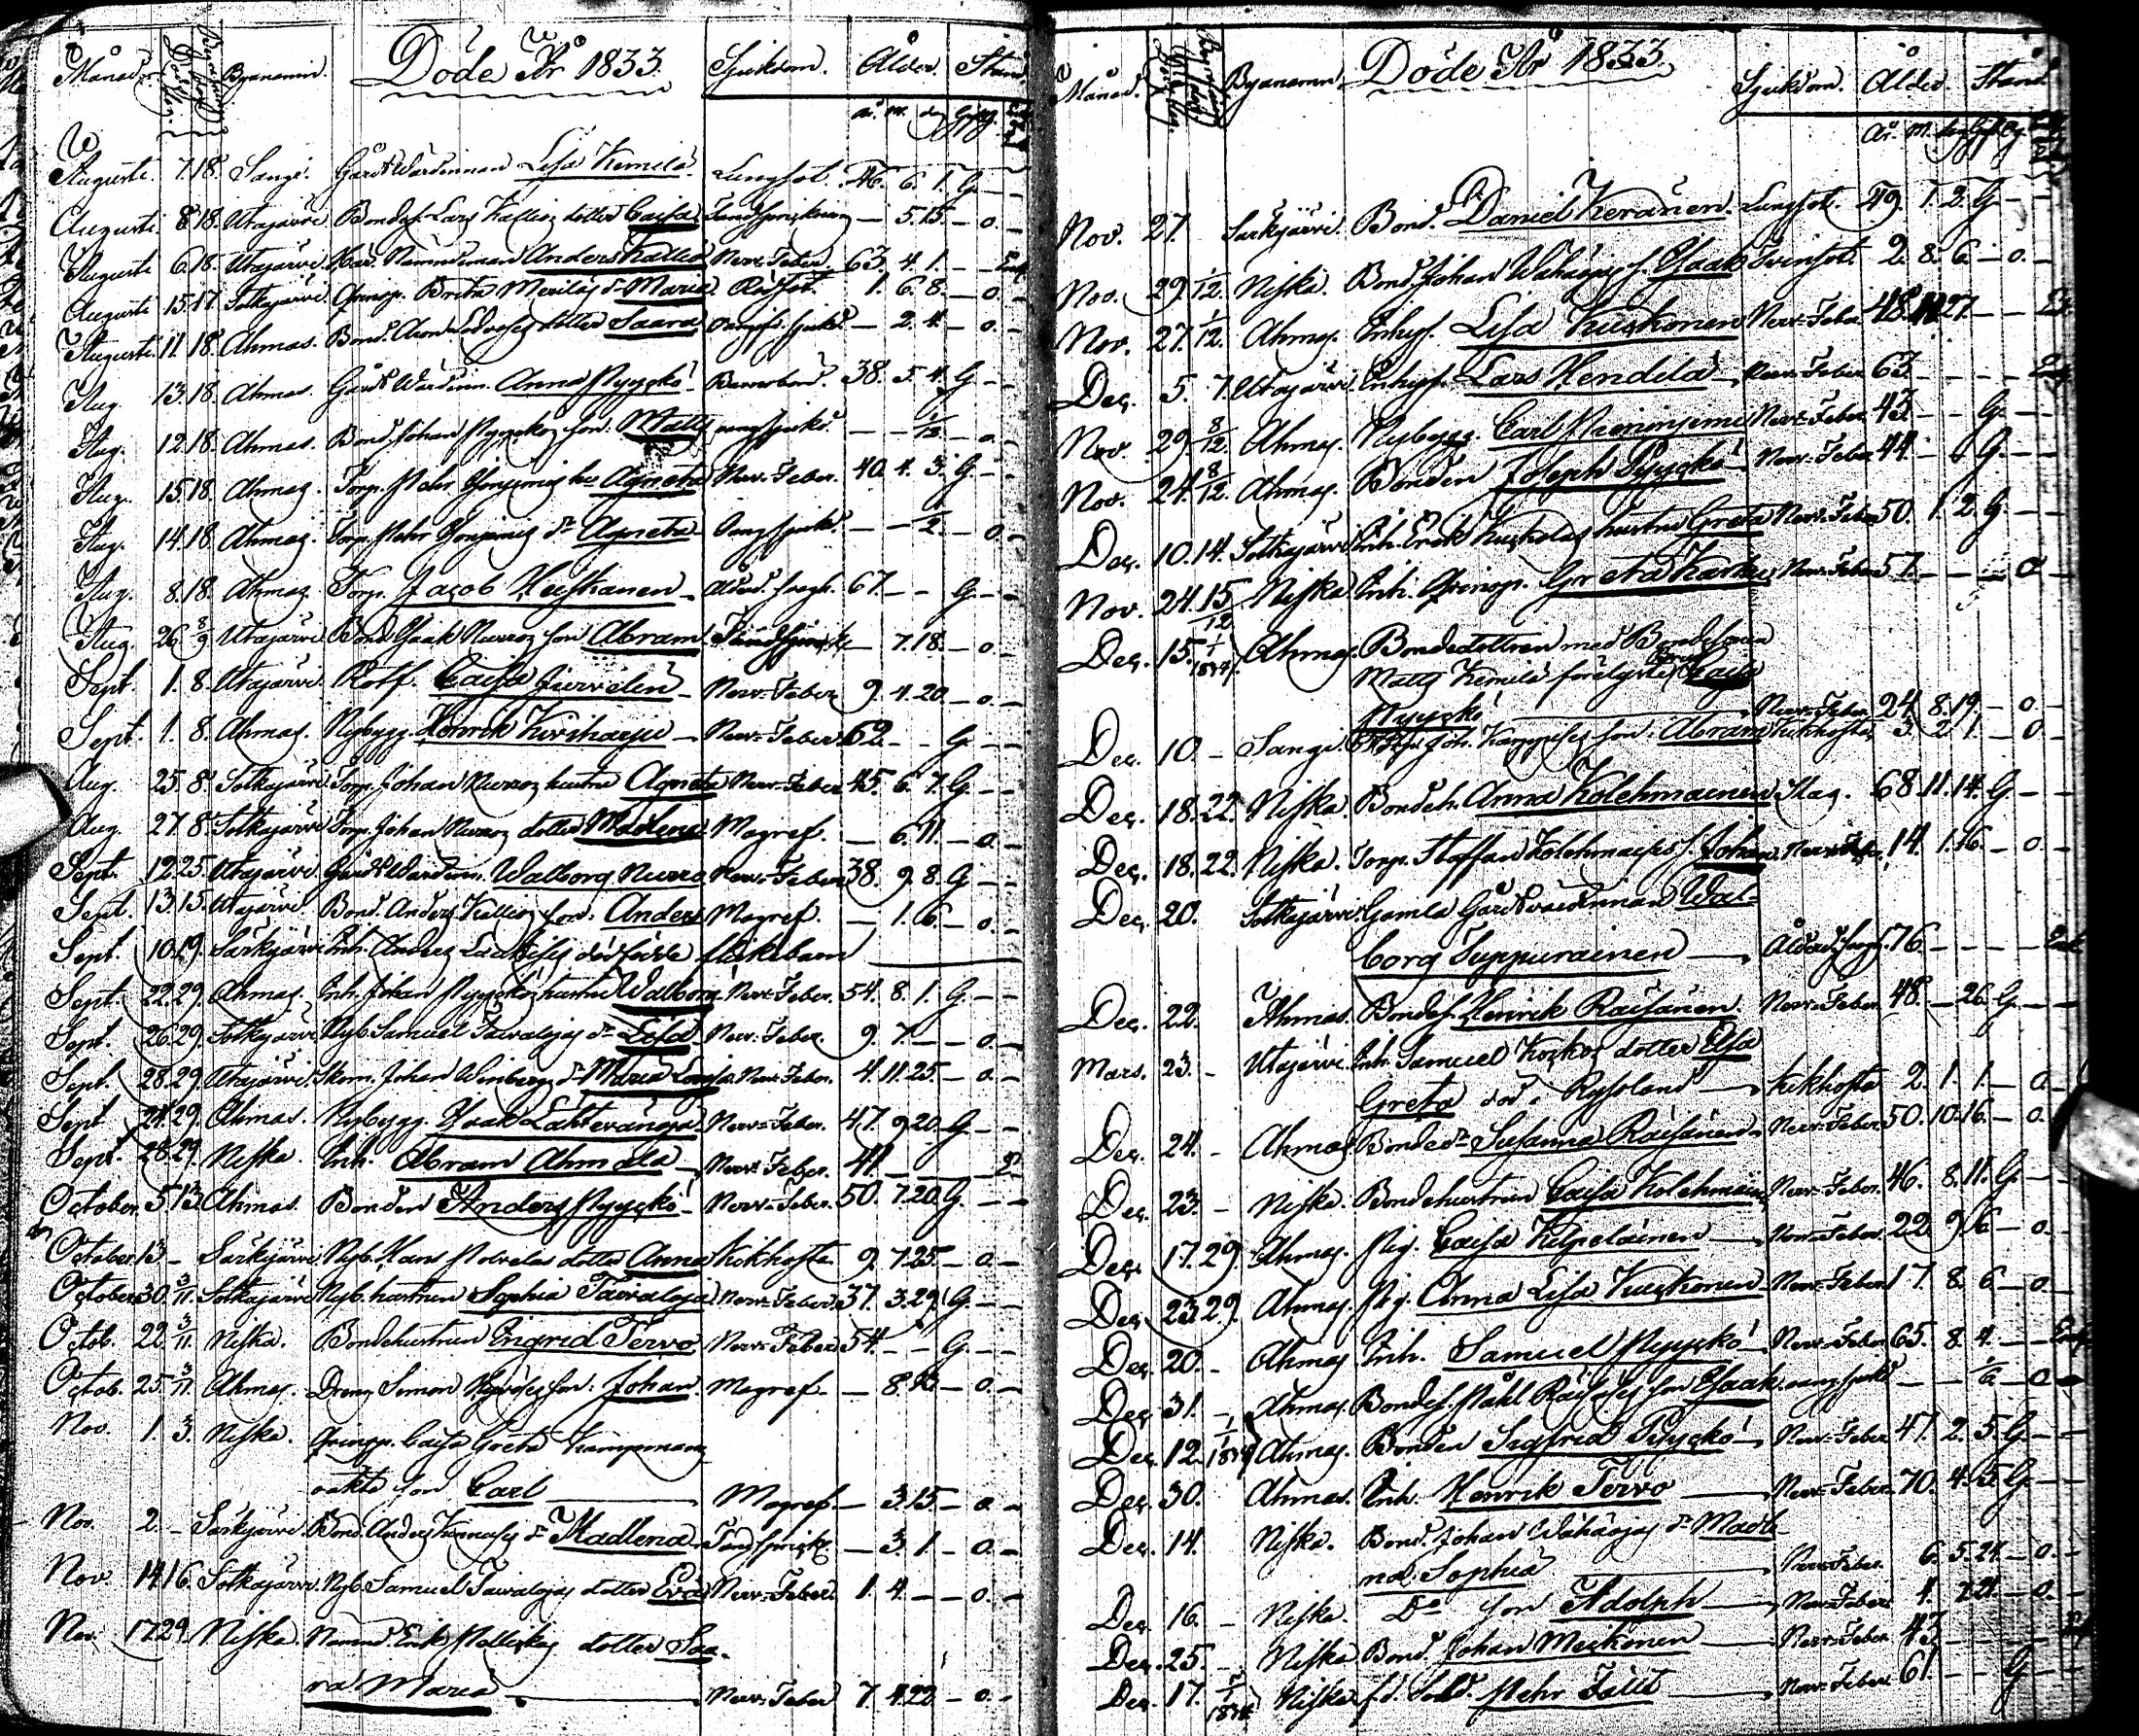 Månad. Död. Begrafning. Byanamn. Döde År 1833. Sjukdom. Ålder. Stånd
år. m. dag. Gift. Og.
Augusti. 7. 18. Sangi. Gårdt Wärdinnan Lisa Kemilä. Lungsot. 46. 6. 1. G. - -
Augusti. 8. 18. Utajärvi Bondes. Lars Kallios dotter Caisa - 5. 15. - o. -
Augusti 6. 18. Utajärvi. Nämndeman Anders Kallio Nerv-Feber 63. 4. 1. - - Enk.
Augusti 15. 17. Sotkajärvi. Qvinsp. Brita Merilas dr Maria. Rödsot. 1. 6. 8. - o. -
Augusti. 11. 18. Ahmas. Bond. dotter Saara - 2. 4. - o. -
Aug. 13. 18. Ahmas. Gårdt Wärdinn. Anna Pyyckö Barnsbörd. 38. 5. 4. G. - -
Aug. 12. 18. Ahmas. Bond. Johan Pyyckös son. Matts - - 1/12 - o. -
Aug. 15. 18. Ahmas. Torp. Pehr hu Agneta Nerv-Feber. 40. 4. 3. G. - -
Aug. 14. 18. Ahmas. Torp. Pehr dr Agneta - - 1/2. - o. -
Aug. 8. 18. Ahmas Torp. Jacob Heiskanen Ålderd. 67. - - G. - -
Aug. 26. 8/9 Utajärvi Bond. Isaak Nurros son Abram. - 7. 18. - o. -
Sept. 1. 8. Utajärvi. Rotf. Caisa Jurvelin Nerv-Feber 9. 4. 20. - o. -
Sept. 1. 8. Ahmas. Nybygg. Henrik Kiviharju Nerv-Feber. 62. - - G. - -
Aug. 25. 8. Sotkajärvi Torp. Johan Nurros hustru Agneta Nerv-Feber 45. 6. 7. G. - -
Aug. 27. 8. Sotkajärvi Torp. Johan Nurros dotter Madlena Magref. - 6. 11. - o. -
Sept. 12. 25. Utajärvi. Gårdt Wärdinn. Walborg Nurro Nerv-Feber 38. 9. 8. G. - -
Sept. 13. 15. Utajärvi Bond. Anders Kallios son. Anders Magref. - 1. 6. - o. -
Sept. 10. 19. Särkijärvi Inh. Anders dödfödde flickebarn
Sept. 22. 29. Ahmas. Inh. Johan Pyyckös hustru Walborg. Nerv-Feber. 54. 8. 1. G. - -
Sept. 26. 29. Sotkajärvi. Nyb. Samuel Taivalojas dr Lisa Nerv-Feber. 9. 7. - - o. -
Sept. 28. 29. Utajärvi. Skom. Johan Winbergs dr Maria Lovisa. Nerv-Feber. 4. 11. 25. - o. -
Sept 24. 29. Ahmas. Nybygg. Isaak Lähtevänoja Nerv-Feber. 47. 9. 20. G. - -
Sept. 28. 29. Niska. Inh. Abram Ahmala Nerv-Feber. 41. - -
October. 5. 13. Ahmas. Bonden Anders Pyyckö Nerv-Feber. 50. 7. 20. G. - -
October. 13. - Särkijärvi. Nyb. Hans dotter Anna Kikhosta 9. 7. 25. - o. -
October. 30. 3/11. Sotkajärvi Nyb. hustrun Sophia Taivaloja Nerv-Feber 37. 3. 29. G. - -
Octob. 22. 3/11. Niska. Bondehustrun Ingrid Tervo Nerv-Feber 54. - - G. - -
Octob. 25. 3/11. Ahmas. Dreng Simon son. Johan. Magref. - 8. 23. - o. -
Nov. 1. 3. Niska. Qvinsp. Caisa Greta Kampmans
oäkta son Carl Magref. - 3. 15. - o. -
Nov. 2. - Särkijärvi. Bond. Anders dr Madlena. - 3. 1. - o. -
Nov. 14. 16. Sotkajärvi. Nyb. Samuel Taivalojas dotter Eva Nerv-Feber. 1. 4. - - o. -
Nov. 17. 29. Niska Nämnd. Erik dotter Saa-
ra Maria Nerv-Feber 7. 4. 22. - o. -
Månad. Död. Begrafning. Byanamn. Döde År 1833. Sjukdom. Ålder. Stånd
År. M. dag. Gft. Og.
Nov. 27. Särkijärvi. Bond. Daniel Keränen. Lungsot. 49. 1. 2. G. - -
Nov. 29. 1/12. Niska. Bond. Johan Wähäojas s. Isaak Tvinsot. 2. 8. 6. - o. -
Nov. 27. 1/12. Ahmas. Inhys. Lisa Kuskonen Nerv-Feber 48. 11. 27. - - Enk.
Dec. 5. 7. Utajärvi. Inhys. Lars Hendilä Nerv-Feber 63. - - - - Enk.
Nov. 29. 8/12. Ahmas. Nybygg. Carl Nieminiemi Nerv-Feber. 43. - - G. - -
Nov. 24. 8/12. Ahmas. Bonden Joseph Pyyckö Nerv-Feber 44. - - G. - -
Dec. 10. 14. Sotkajärvi Inh. Erik hustru Greta Nerv-Feber 50. 1. 2. G. - -
Nov. 24. 15/12 Niska. Inh. Qvinsp. Greta Karhu Nerv-Feber 57. - - - o -
Dec. 15. 1/1 1834. Ahmas. Bondedottren med Bondesonen
Matts Kemilä förelofvade Caisa
Pyyckö Nerv-Feber 24. 8. 19. - o. -
Dec. 10. - Sangi. Joh. son. Abram Kikhosta 3. 2. 1. - o. -
Dec. 18. 22. Niska. Bondeh. Anna Kolehmainen Slag. 68. 11. 14. G. - -
Dec. 18. 22. Niska. Torp. Staffan Kolehmaises s. Johan. Nerv-Feber. 14. 1. 16. - o. -
Dec. 20. Sotkajärvi. Gamla Gårdtvärdinnan Wal-
borg Suppurainen Ålderd. 76. - - - - Enk.
Dec. 22. Ahmas. Bondes. Henrik Räisänen. Nerv-Feber. 48. - 26. G. - -
Mars. 23. - Utajärvi. Inh. Samuel Koskos dotter Elsa
Greta död i Ryssland Kikhosta 2. 1. 1. - o. -
Dec. 24. - Ahmas Bondedr Susanna Räisänen Nerv-Feber. 50. 10. 16. - o. -
Dec. 23. - Niska. Bondehustrun Caisa Kolehmainen Nerv-Feber. 46. 8. 11. G. - -
Dec. 17. 29. Ahmas. Pig. Caisa Kilpeläinen Nerv-Feber. 22. 9. 6. - o. -
Dec. 23. 29. Ahmas. Pig. Anna Lisa Kuskonen Nerv-Feber. 17. 8. 6. - o. -
Dec. 20. - Ahmas Inh. Samuel Pyyckö Nerv-Feber 65. 8. 4. - - Enk.
Dec. 31. - Ahmas. Bondes. Påhl son Isaak - - - o -
Dec. 12. 1/1 1834 Ahmas. Bonden Sigfred Pyyckö Nerv-Feber 47. 2. 5. G. - -
Dec. 30. Ahmas. Inh. Henrik Tervo Nerv-Feber. 70. 4. 5. G. - -
Dec. 14. Niska. Bond. Johan Wähäojas dr Madle-
na Sophia Nerv-Feber. 6. 5. 24. - o. -
Dec. 16. - Niska. Do son Adolph Nerv-Feber. 4. 7. 21. - o. -
Dec. 25. - Niska Bond. Johan Meskonen Nerv-Feber. 43 - - - - Enk.
Dec. 17. 2/1 1834 Niska f.d. Sold. Pehr Fält Nerv-Feber. 61. - - G - -